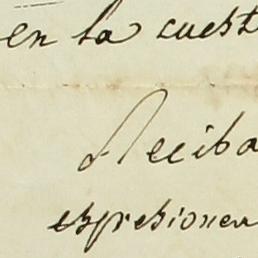 en la cuest
Reciba
espresionen